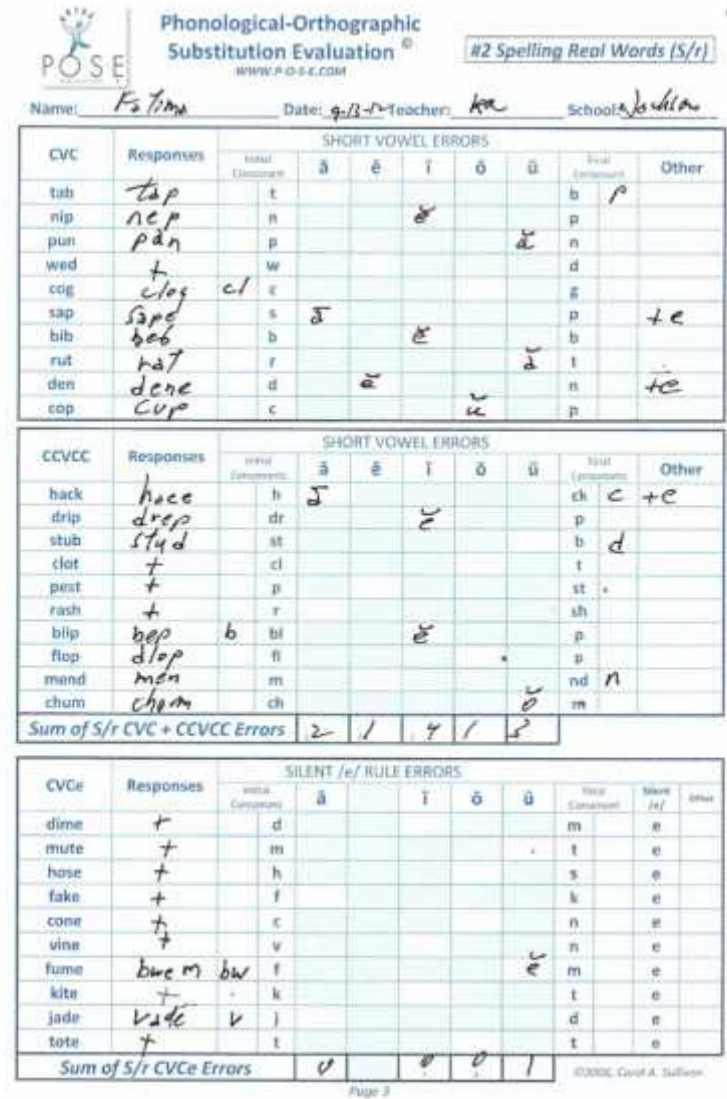 Phonological-Orthographic
Substitution Evaluation ©
WWW.P-O-S-E.COM
POSE
#2 Spelling Real Words (S/r)
Name: Fatima Date: 9-13-12 Teacher: Ka School: Jackson
SHORT VOWEL ERRORS
CVC Responses Initial Consonant ă ĕ ĭ ŏ ŭ Final Consonant Other
tab tap t b p
nip nep n ĕ p
pun pan p ă n
wed + w d
cog clog cl c g
sap sape s ā p +e
bib beb b ĕ b
rut rat r ă t
den dene d ē n +e
cop cup c ŭ p
SHORT VOWEL ERRORS
CCVCC Responses Initial Consonants ă ĕ ĭ ŏ ŭ Final Consonants Other
hack hace h ā ck c +e
drip drep dr ĕ p
stub stud st b d
clot + cl t
pest + p st
rash + r sh
blip bep b bl ĕ p
flop dlop fl p
mend men m nd n
chum chom ch ŏ m
Sum of S/r CVC + CCVCC Errors 2 1 4 1 3
SILENT /e/ RULE ERRORS
CVCe Responses Initial Consonant ā ī ō ū Final Consonant Silent /e/ Other
dime + d m e
mute + m t e
hose + h s e
fake + f k e
cone + c n e
vine + v n e
fume bwem bw f ĕ m e
kite + k t e
jade vade v j d e
tote + t t e
Sum of S/r CVCe Errors 0 0 0 1
©2006, Carol A. Sullivan
Page 3